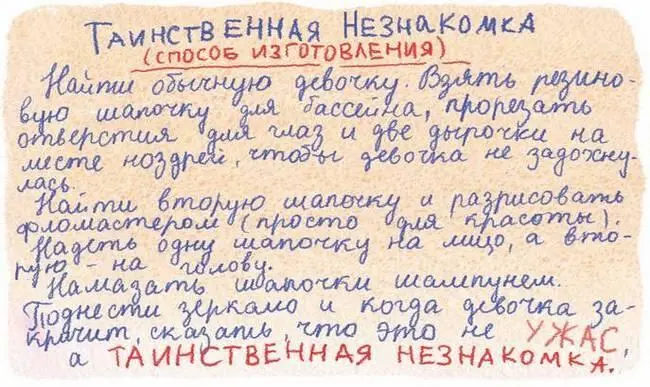 Таинственная Незнакомка
(способ изготовления)
Найти обычную девочку. Взять резино-
вую шапочку для бассейна, прорезать
отверстия для глаз и две дырочки на
месте ноздрей, чтобы девочка не задохну-
лась.
Найти вторую шапочку и разрисовать
фломастером (просто для красоты).
Надеть одну шапочку на лицо, а вто-
рую – на голову.
Намазать шапочки шампунем.
Поднести зеркало и когда девочка за-
кричит, сказать, что это не УЖАС,
а ТАИНСТВЕННАЯ НЕЗНАКОМКА.